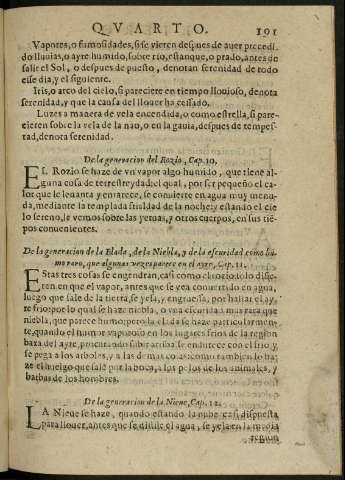 QVARTO. 101
Vapores, o fumosidades, si se vieren despues de auer precedi-
do lluuias, o ayre humido, sobre rio, estanque, o prado, antes de
salir el Sol, o despues de puesto, denotan serenidad de todo
esse dia, y el siguiente.
Iris, o arco del cielo, si pareciere en tiempo llouioso, denota
serenidad, y que la causa del llouer ha cessado.
Luzes a manera de vela encendida, o como estrella, si pare-
cieren sobre la vela de la nao, o en la gauia, despues de tempes-
tad, denota serenidad.
De la generacion del Rozio, Cap. 10.
EL Rozio se haze de vn vapor algo humido, que tiene al-
guna cosa de terrestreydad: el qual, por ser pequeño el ca-
lor que le leuanta y enrarece, se conuierte en agua muy menu-
da, mediante la templada frialdad de la noche: y estando el cie
lo sereno, le vemos sobre las yeruas, y otros cuerpos, en sus tié-
pos conuenientes.
De la generacion de la Elada, de la Niebla, y de la escuridad como hu-
mo raro, que algunas vezes parece en el ayre, Cap. 11.
EStas tres cosas se engendran, casi como el rozio: lo disie-
ren en que el vapor, antes que se vea conuertido en agua,
luego que sale de la tierra, se yela, y engruessa, por hallar el ay-
re frio: por lo qual se haze niebla, o vna escurida mas rara que
niebla, que parece humo: pero la elada se haze particularmen-
te, quando el humor vaporoso en los lugares frios de la region
baxa del ayre, procurando subir arriba, se endurece con el frio, y
se pega a los arboles, y a las demas cosas: como tambien lo ha-
ze el huelgo que sale por la boca, a los pelos de los animales, y
barbas de los hombres.
De la generacion de la Nieue, Cap. 12.
LA Nieue se haze, quando estando la nube casi dispuesta
para llouer, antes que se distile el agua, se yela en la media
region